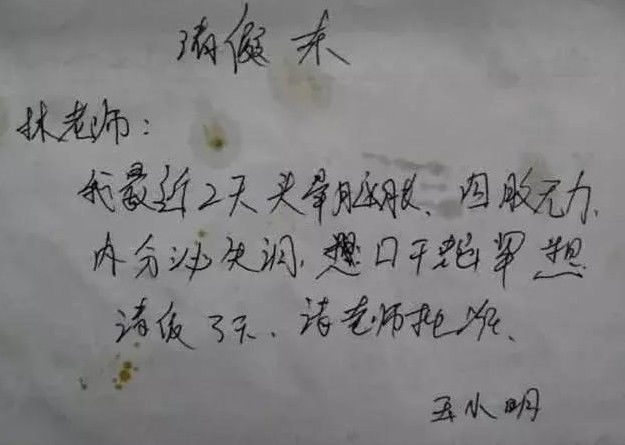 请假条
林老师：
我最近2天头晕脑胀、四肢无力、
内分泌失调、口干舌 想
请假3天、请老师批准、
王小明